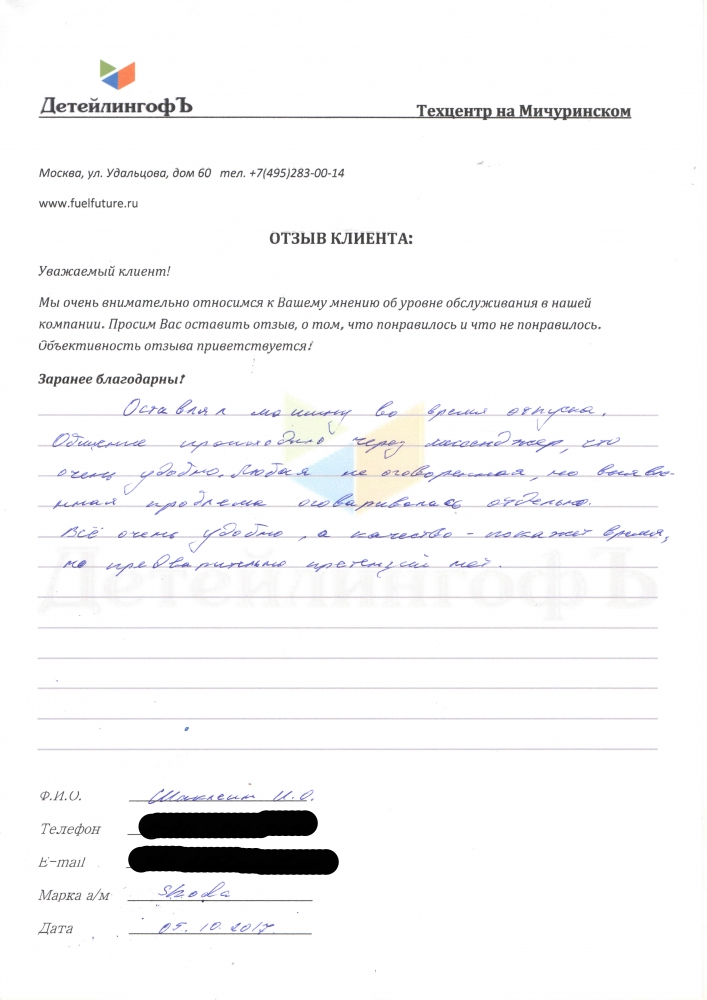 ДетейлингофЪ
Техцентр на Мичуринском
Москва, ул. Удальцова, дом 60 тел. +7(495)283-00-14
www.fuelfuture.ru
ОТЗЫВ КЛИЕНТА:
Уважаемый клиент!
Мы очень внимательно относимся к Вашему мнению об уровне обслуживания в нашей
компании. Просим Вас оставить отзыв, о том, что понравилось и что не понравилось.
Объективность отзыва приветствуется!
Заранее благодарны!
Оставлял машину во время отпуска.
Общение происходило через мессенджер, что
очень удобно. Любая не оговоренная, но выявле-
нная проблема оговаривалась отдельно.
Всё очень удобно, а качество - покажет время,
но предварительно претензий нет.
ДетейлингофЪ
Ф.И.О. Шаклеин И.О.
Телефон
E-mail
Марка а/м Skoda
Дата 05.10.2017.